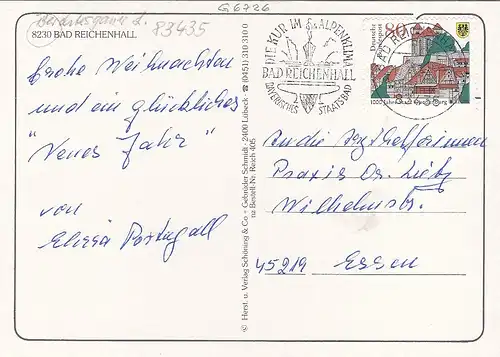 G6726
83435
8230 BAD REICHENHALL
Frohe Weihnachten
und ein glückliches
"Neues Jahr"
von
Elissa Portugall
© Herst. u. Verlag Schöning & Co + Gebrüder Schmidt · 2400 Lübeck ☎ (0451) 310 310 0
na Bestell-Nr. Reich 405
DIE KUR IM ALPENKLIMA
BAD REICHENHALL
BAYERISCHES STAATSBAD
BAD REICHENHALL
Deutsche Bundespost
80
1000 Jahre Stadt Quedlinburg
An die Arzthelferinnen
Praxis Dr. Liebz
Wilhelmstr.
45219 Essen